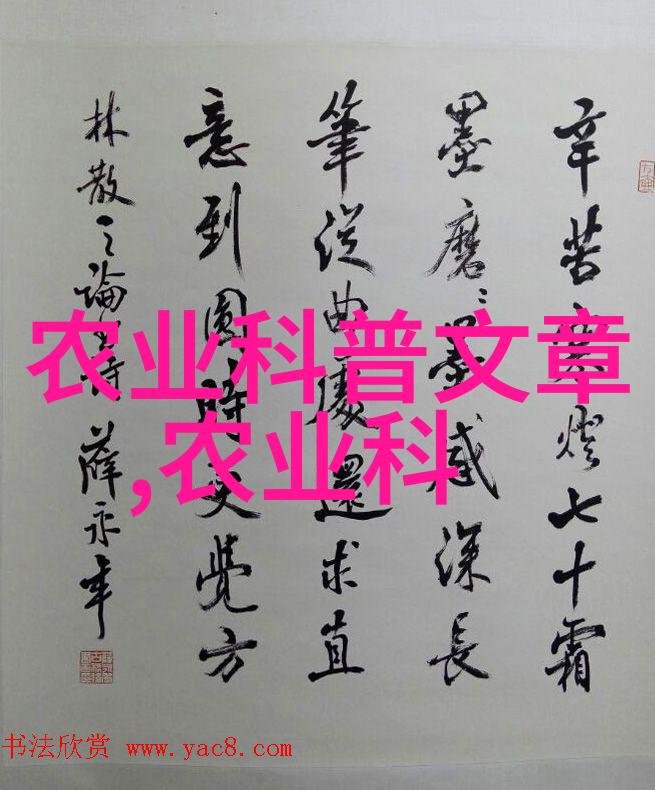 辛苦寒燈七十霜
墨磨々墨感深長
筆從曲處還求直
意到圓時更覺方
林散之論書詩 薛永年
农业科普文章
,农业科
书法欣赏 www.yac8.com